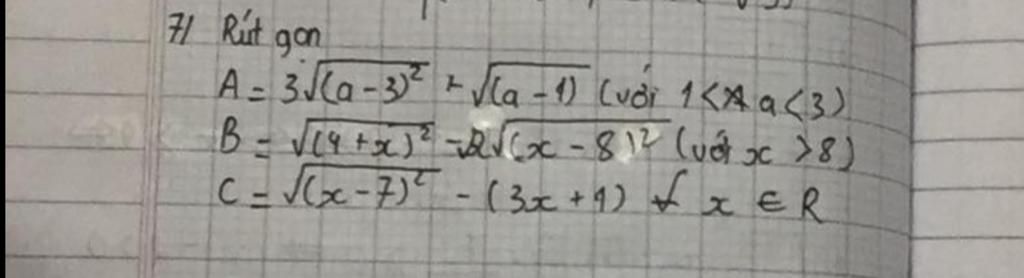 7/ Rút gọn
A = 3√(a-3)² + √(a-1) (với 1 < a < 3)
B = √(4+x)² - 2√(x-8)² (với x > 8)
C = √(x-7)² - (3x+1) ∀ x ∈ R